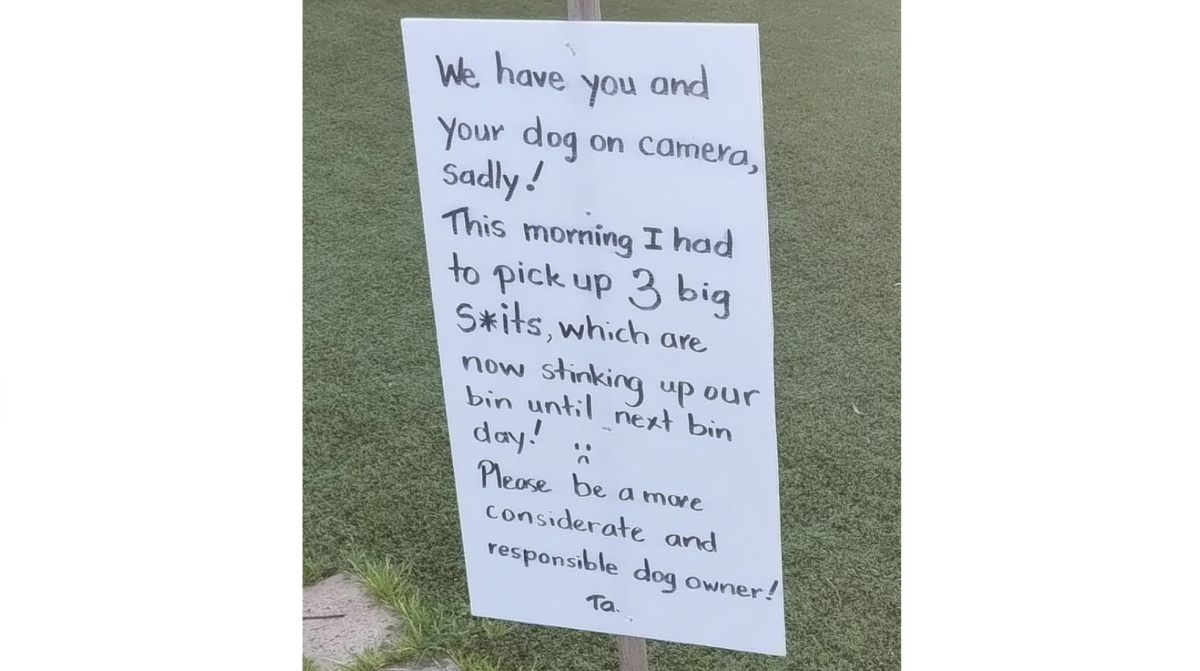 We have you and
your dog on camera,
sadly!
This morning I had
to pick up 3 big
S*its, which are
now stinking up our
bin until next bin
day! :(
Please be a more
considerate and
responsible dog owner!
Ta.